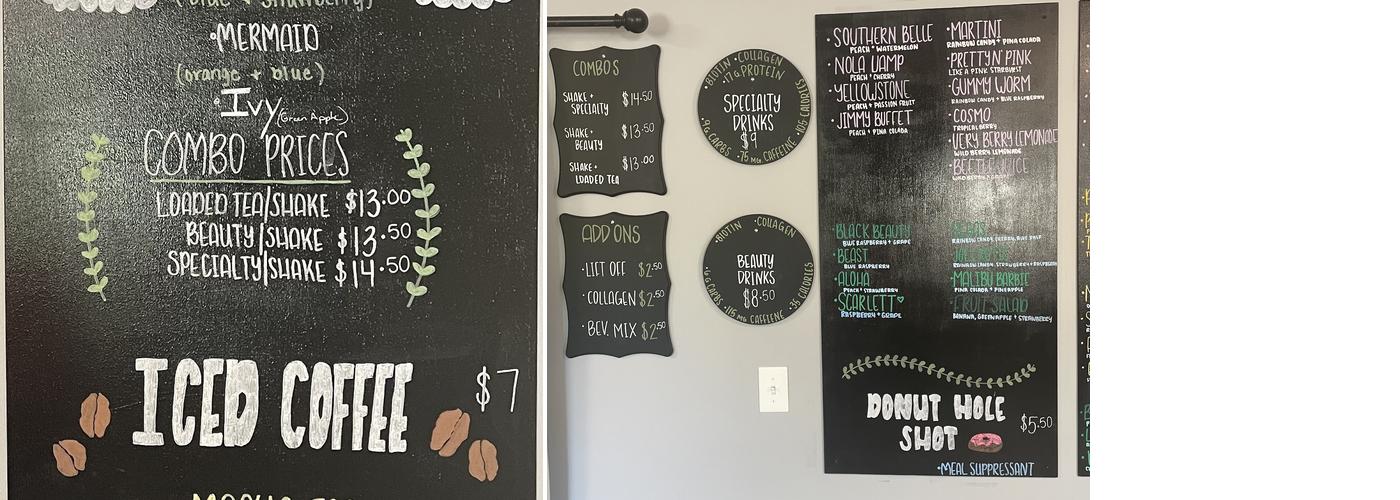 (blue + strawberry)
MERMAID
(orange + blue)
Ivy (Green Apple)
COMBO PRICES
LOADED TEA/SHAKE $13.00
BEAUTY/SHAKE $13.50
SPECIALTY/SHAKE $14.50
ICED COFFEE $7
COMBO'S
SHAKE + SPECIALTY $14.50
SHAKE + BEAUTY $13.50
SHAKE + LOADED TEA $13.00
ADD'ONS
LIFT OFF $2.50
COLLAGEN $2.50
BEV. MIX $2.50
BIOTIN · COLLAGEN
17g PROTEIN
SPECIALTY
DRINKS
$9
9g CARBS · 75 mg CAFFEINE · 105 CALORIES
BIOTIN · COLLAGEN
BEAUTY
DRINKS
$8.50
CARBS · 115 mg CAFFIENE · 35 CALORIES
SOUTHERN BELLE
PEACH + WATERMELON
NOLA VAMP
PEACH + CHERRY
YELLOWSTONE
PEACH + PASSION FRUIT
JIMMY BUFFET
PEACH + PINA COLADA
MARTINI
RAINBOW CANDY + PINA COLADA
PRETTY N' PINK
LIKE A PINK STARBURST
GUMMY WORM
RAINBOW CANDY + BLUE RASPBERRY
COSMO
TROPICAL BERRY
VERY BERRY LEMONADE
WILD BERRY LEMONADE
BEETLEJUICE
WILD BERRY
BLACK BEAUTY
BLUE RASPBERRY + GRAPE
BEAST
BLUE RASPBERRY
ALOHA
PEACH + STRAWBERRY
SCARLETT
RASPBERRY + GRAPE
RAINBOW CANDY, CHERRY, BLUE
RAINBOW CANDY, STRAWBERRY +
MALIBU BARBIE
PINA COLADA + PINEAPPLE
FRUIT SALAD
BANANA, GREEN APPLE + STRAWBERRY
DONUT HOLE
SHOT $5.50
MEAL SUPPRESSANT